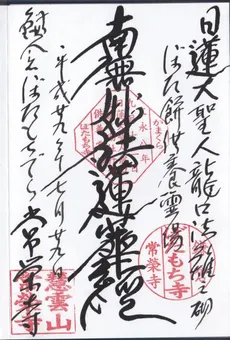 日蓮大聖人龍口法難之砌
ぼた餅供養霊場
南無妙法蓮華経
平成廿九年七月廿九日
鎌倉ぼたもちでら 常栄寺
かまくら
ぼたもち寺
常榮寺
慧雲山
常榮寺